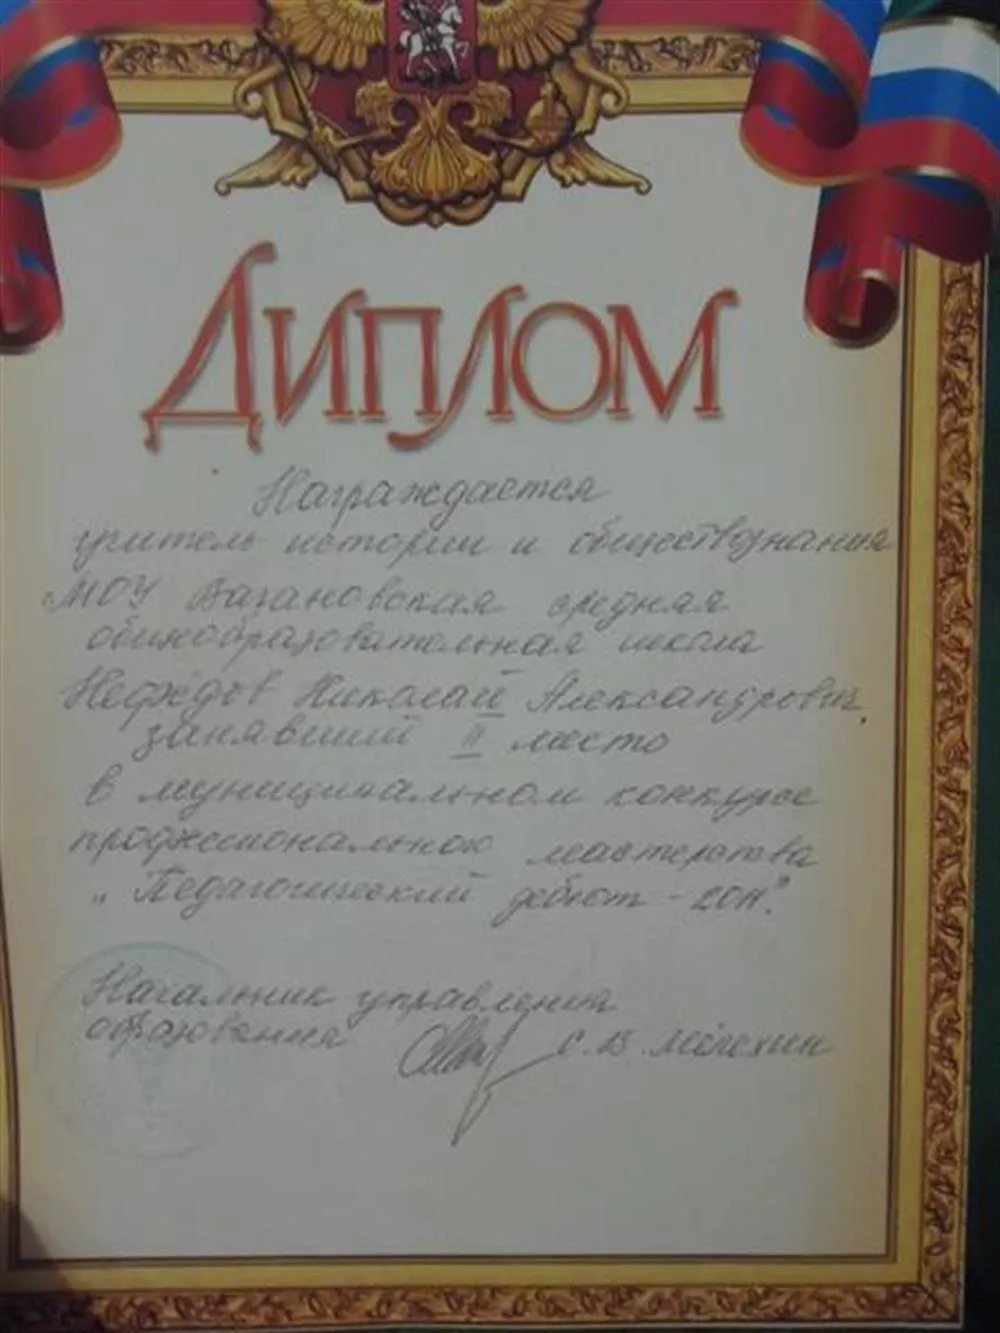 ДИПЛОМ
Награждается
учитель истории и обществознания
МОУ Вагановская средняя
общеобразовательная школа
Нефёдов Николай Александрович,
занявший II место
в муниципальном конкурсе
профессионального мастерства
„Педагогический дебют - 2011".
Начальник управления
образования С.В. Мелехин